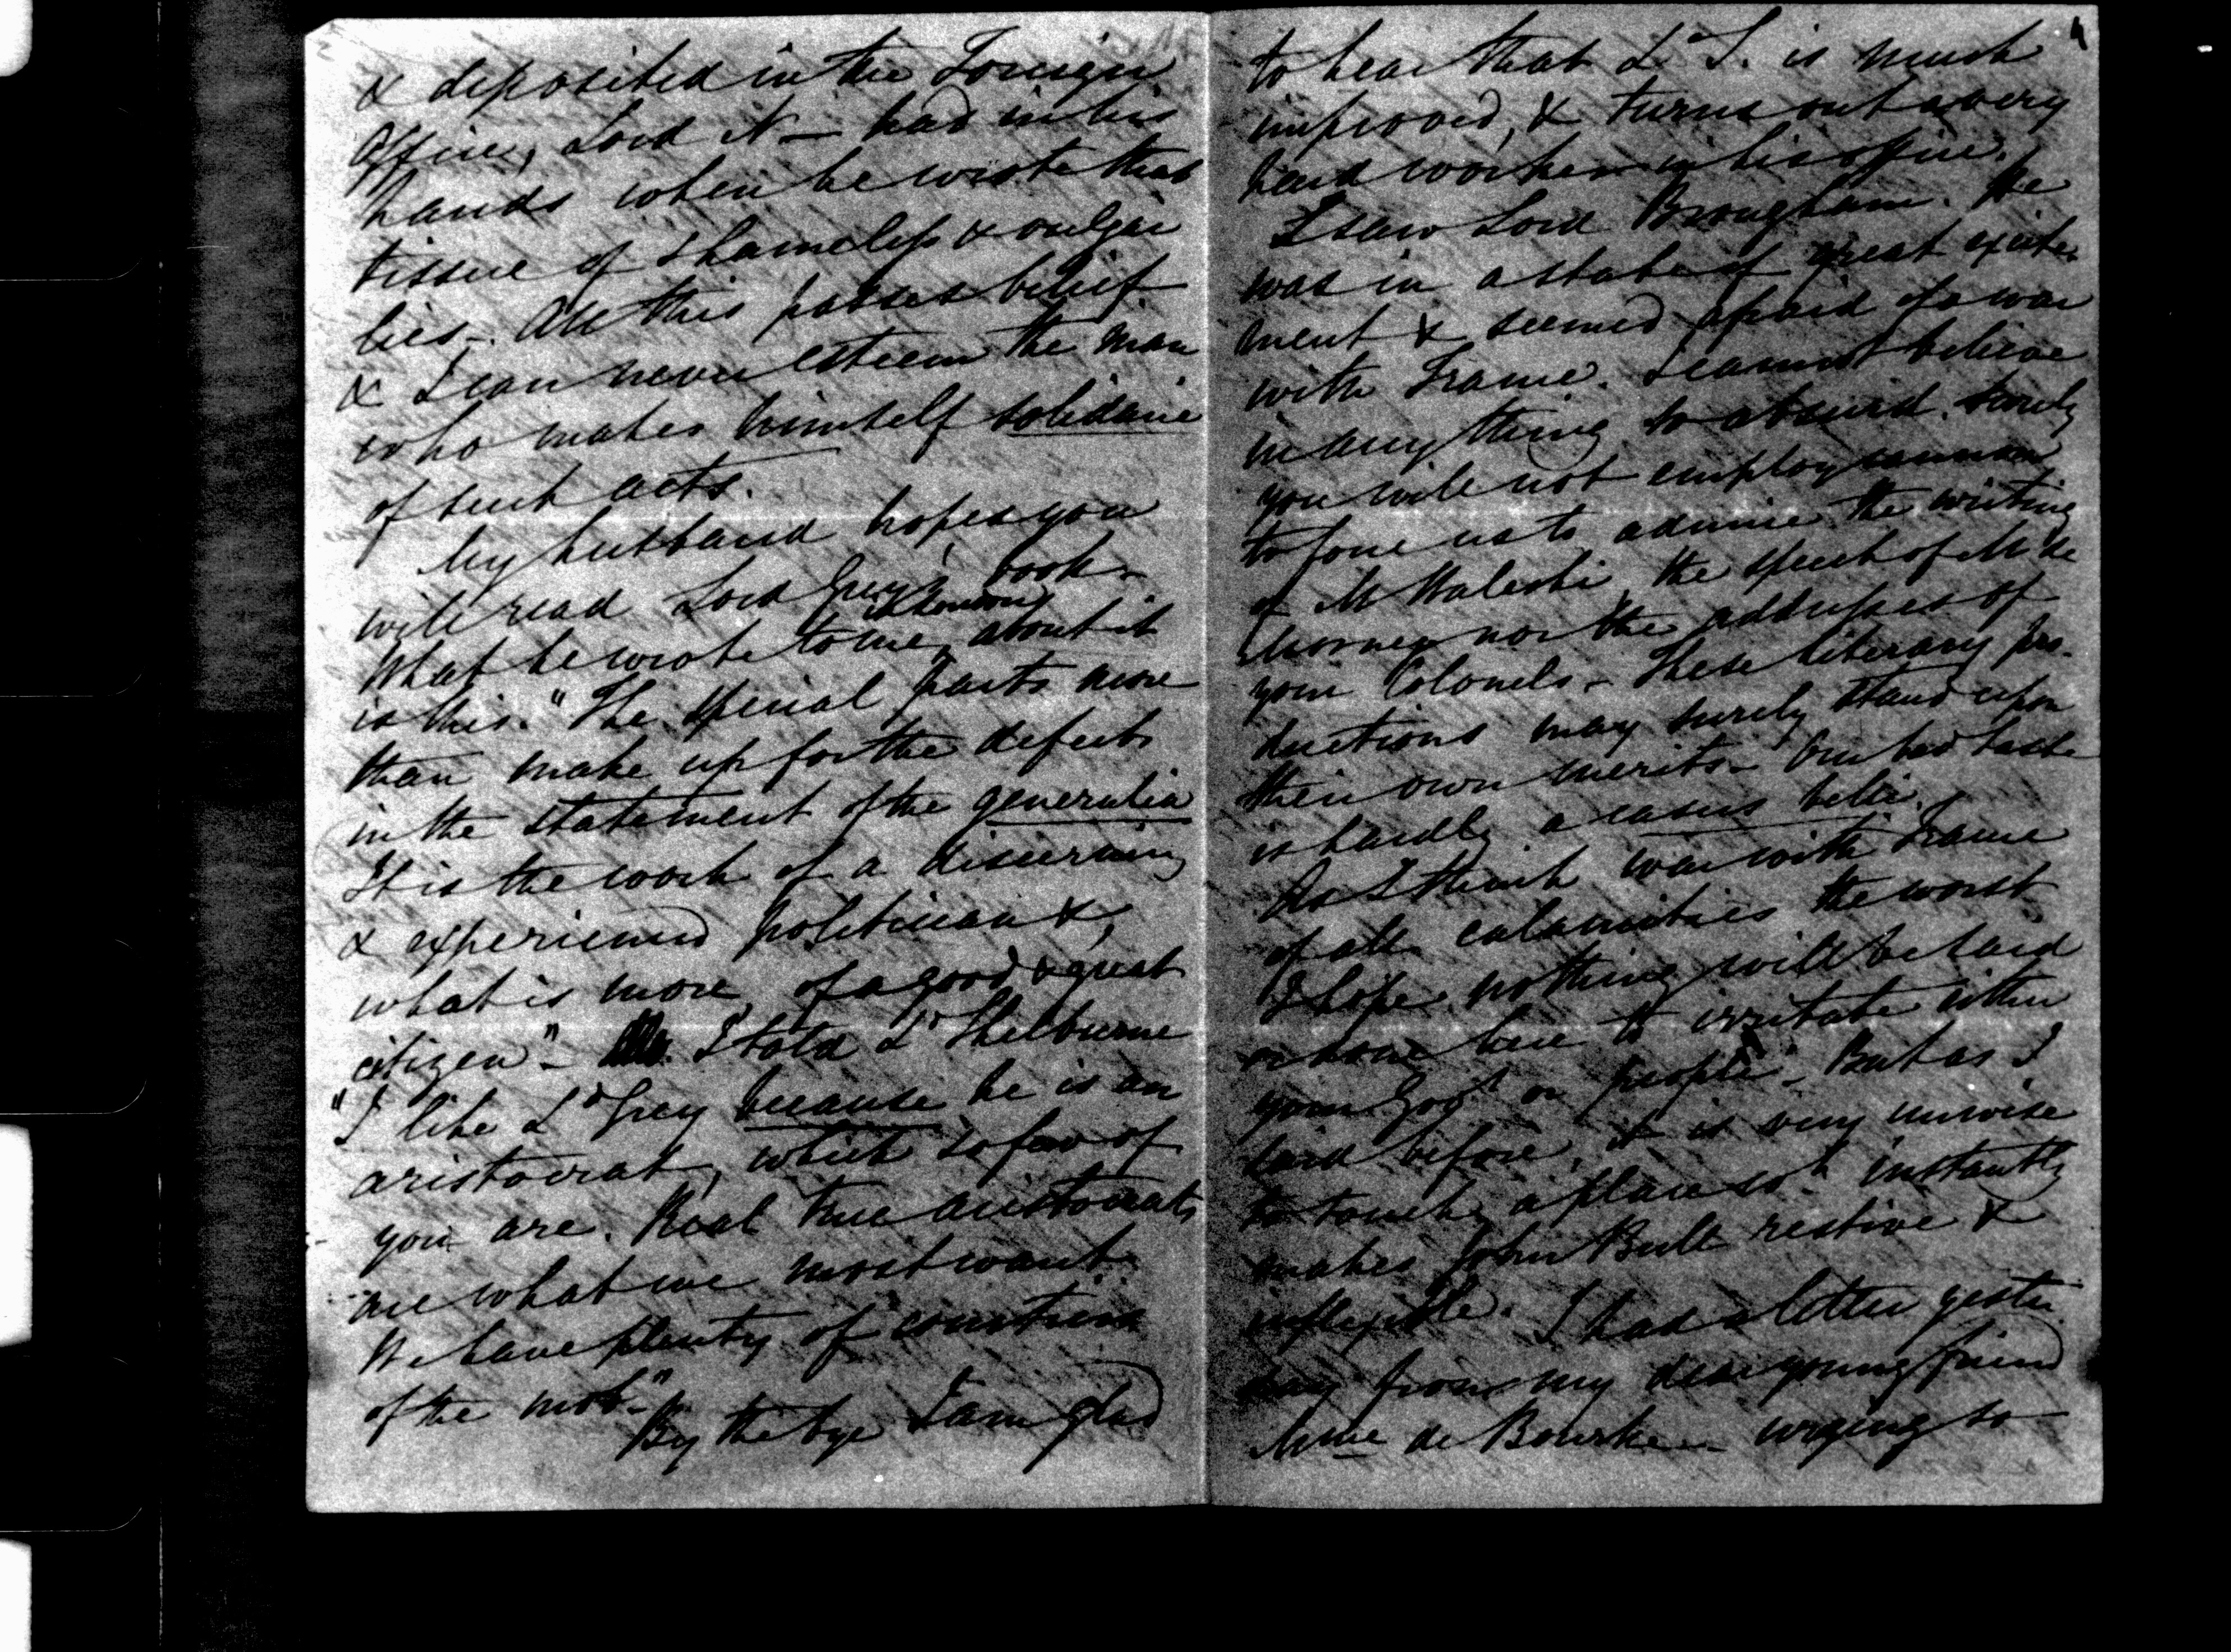 & deposited in the Foreign
Office, Lord N— had in his
hands when he wrote that
tissue of shameless & vulgar
lies—. All this passes belief
& I can never esteem the man
who makes himself solidaire
of such acts.
My husband hopes you
will read Lord Grey's book—
What he wrote to me about it
is this. "The special parts more
than make up for the defects
in the statement of the generalia
It is the work of a discerning
& experienced politician &,
what is more, of a good & great
citizen"— I told Ld Shelburne
"I like Ld Grey because he is an
aristocrat, which so few of
you are. Real true aristocrats
are what we most want.
We have plenty of courtiers
of the mob—"
By the bye I am glad
to hear that Ld S. is much
improved, & turns out a very
hard worker in his office.
I saw Lord Brougham. He
was in a state of great excite-
ment & seemed afraid of a war
with France. I cannot believe
in any thing so absurd. Surely
you will not employ cannon
to force us to admire the writing
of M Waleski, the speech of M de
Morney nor the addresses of
your Colonels— These literary pro-
ductions may surely stand upon
their own merits— Our bad taste
is hardly a casus belli.
As I think war with France
of all calamities the worst
I hope nothing will be said
or done here to irritate either
your Govt or people— But as I
said before, it is very unwise
to touch a place wh instantly
makes John Bull restive &
inflexible. I had a letter yester-
day from my dear young friend
Mme de Bourke— urging so